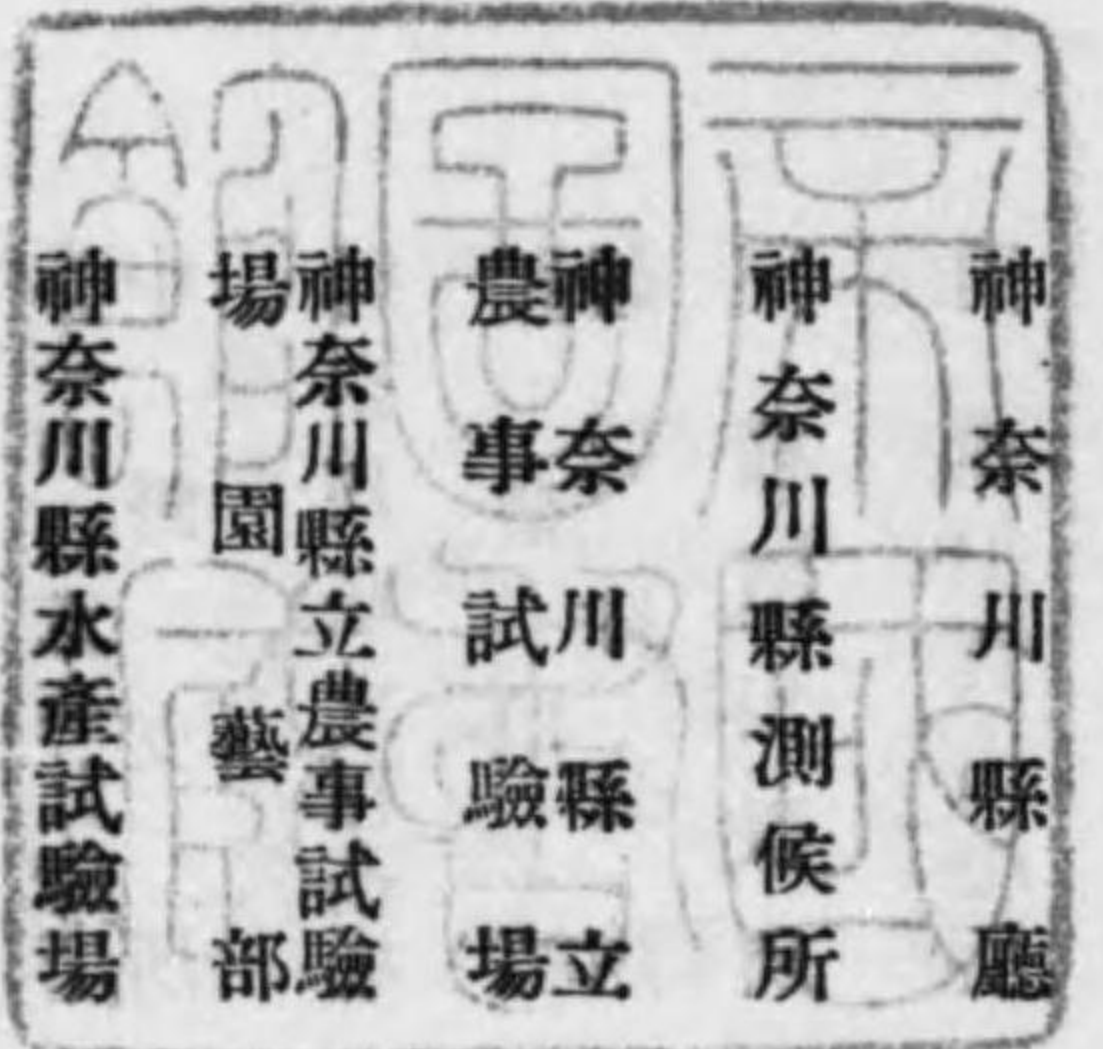 神奈川縣廳
神奈川縣測候所
神奈川縣立
農事試驗場
神奈川縣立農事試驗
場園藝部
神奈川縣水產試驗場